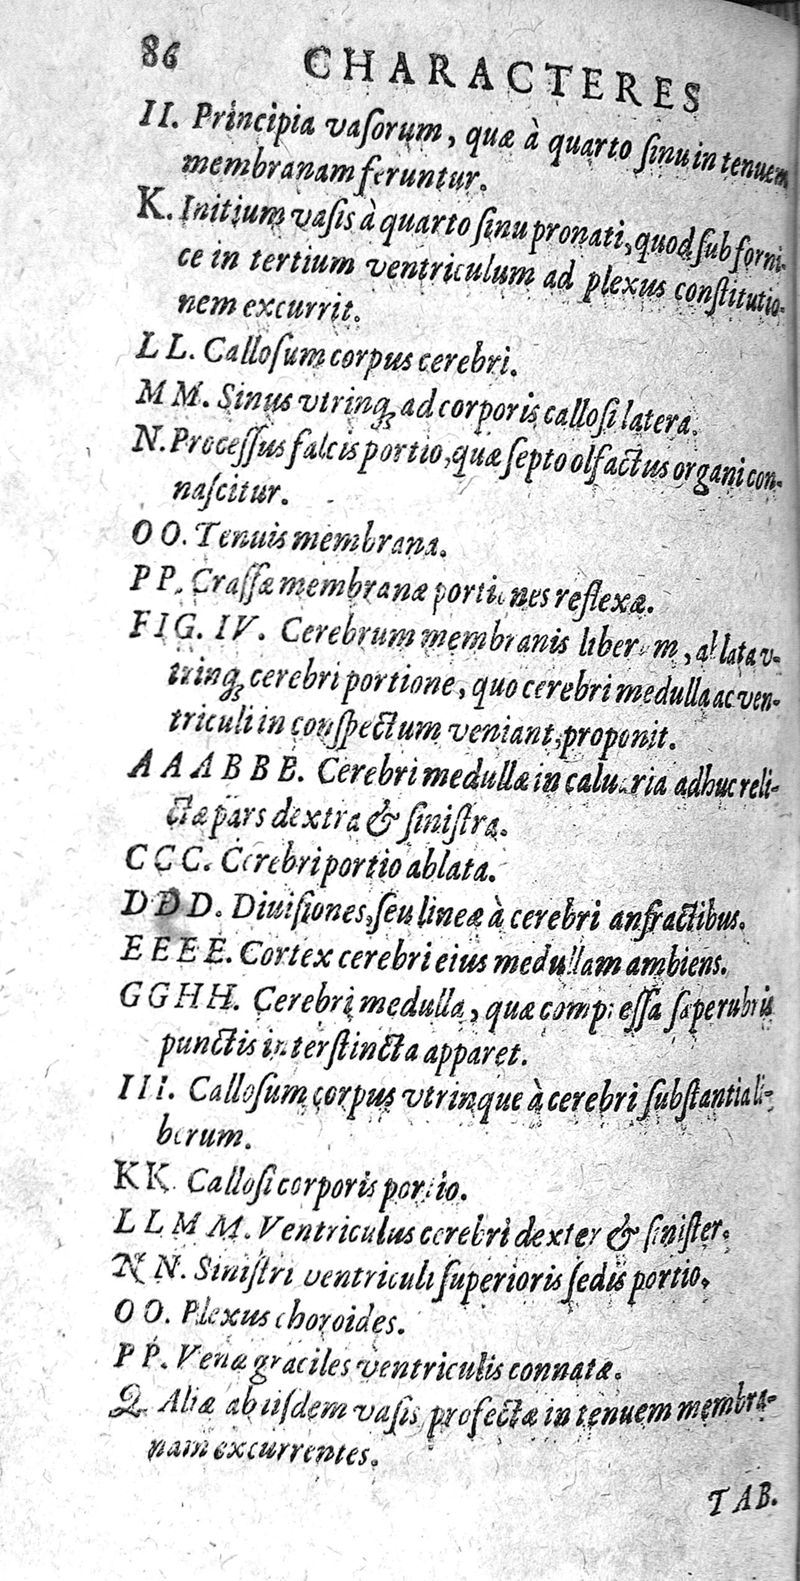 86 CHARACTERES
II. Principia vaſorum, quæ à quarto ſinu in tenuem
membranam feruntur.
K. Initium vaſis à quarto ſinu pronati, quod ſub forni-
ce in tertium ventriculum ad plexus conſtitutio-
nem excurrit.
L L. Calloſum corpus cerebri.
M M. Sinus vtrinq; ad corporis calloſi latera.
N. Proceſſus falcis portio, quæ ſepto olfactus organi con-
naſcitur.
O O. Tenuis membrana.
P P. Craſſæ membranæ portiones reflexæ.
FIG. IV. Cerebrum membranis liberum, ablata v-
trinq; cerebri portione, quo cerebri medulla ac ven-
triculi in conſpectum veniant, proponit.
A A A B B B. Cerebri medullæ in caluaria adhuc reli-
ctæ pars dextra & ſiniſtra.
C C C. Cerebri portio ablata.
D D D. Diuiſiones, ſeu lineæ à cerebri anfractibus.
E E E E. Cortex cerebri eius medullam ambiens.
G G H H. Cerebri medulla, quæ compreſſa ſaperubris
punctis interſtincta apparet.
I I I. Calloſum corpus vtrinque à cerebri ſubſtantia li-
berum.
K K. Calloſi corporis portio.
L L M M. Ventriculus cerebri dexter & ſiniſter.
N N. Siniſtri ventriculi ſuperioris ſedis portio.
O O. Plexus choroides.
P P. Venæ graciles ventriculis connatæ.
Q. Aliæ ab iiſdem vaſis profectæ in tenuem membra-
nam excurrentes.
TAB.